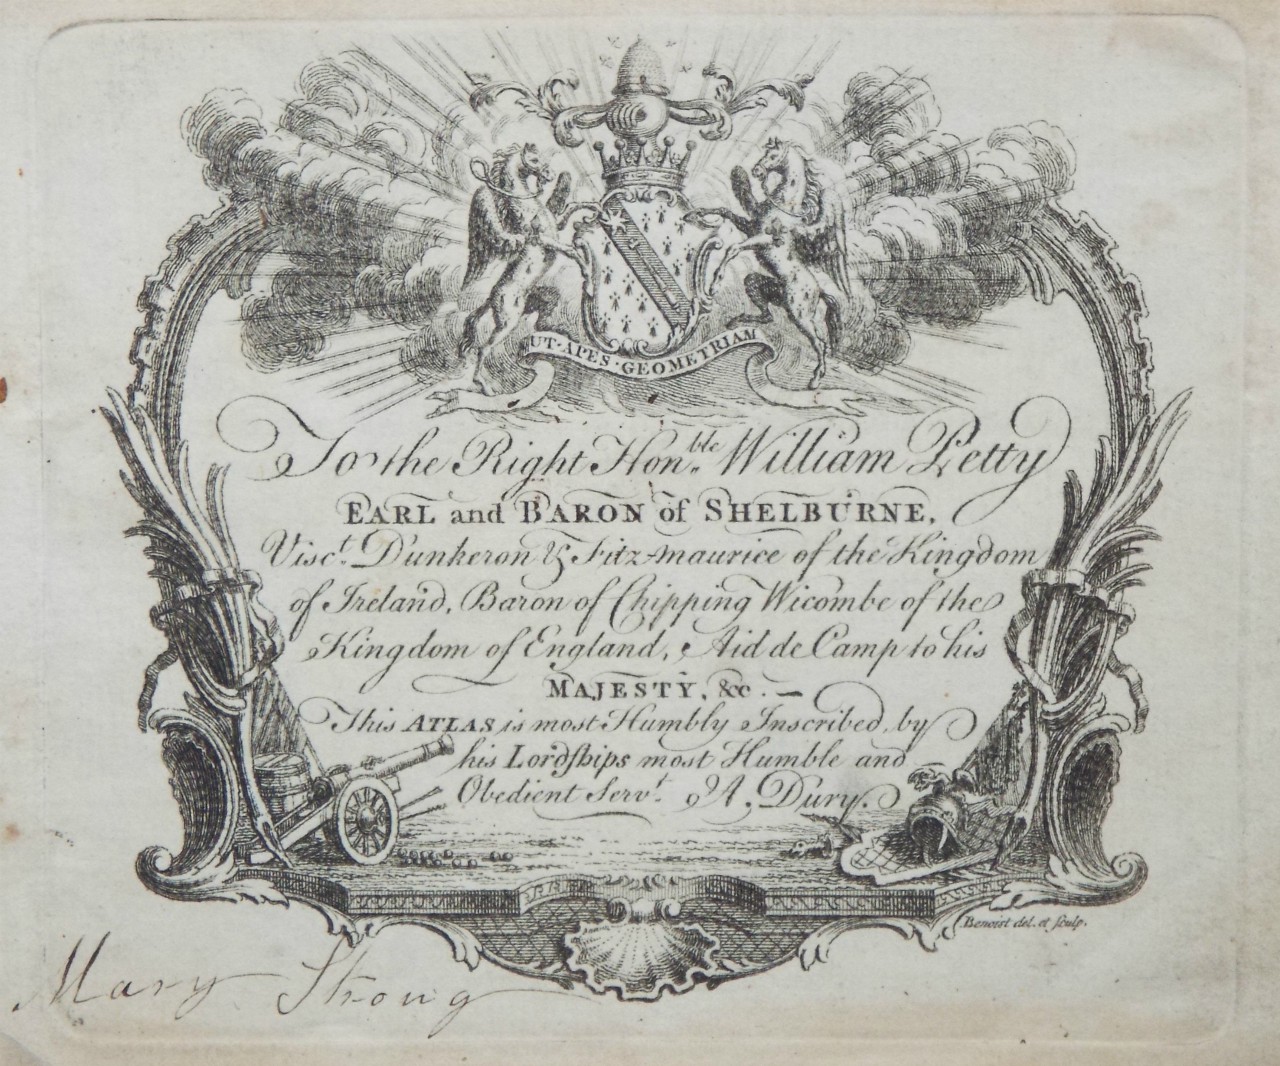 UT·APES·GEOMETRIAM
To the Right Hon.ble William Petty
EARL and BARON of SHELBURNE,
Visc.t Dunkeron & Fitz-maurice of the Kingdom
of Ireland, Baron of Chipping Wicombe of the
Kingdom of England, Aid de Camp to his
MAJESTY, &c. —
This ATLAS is most Humbly Inscribed, by
his Lordſhips most Humble and
Obedient Serv.t A, Dury.
Benoist del. et ſculp.
Mary Strong